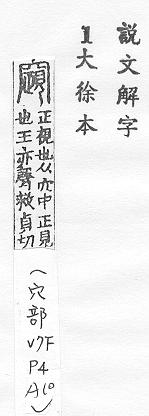 說文解字
1大徐本
竀
正視也从穴中正見
也正亦聲敕貞切
(穴部
V7F
P4
A10)